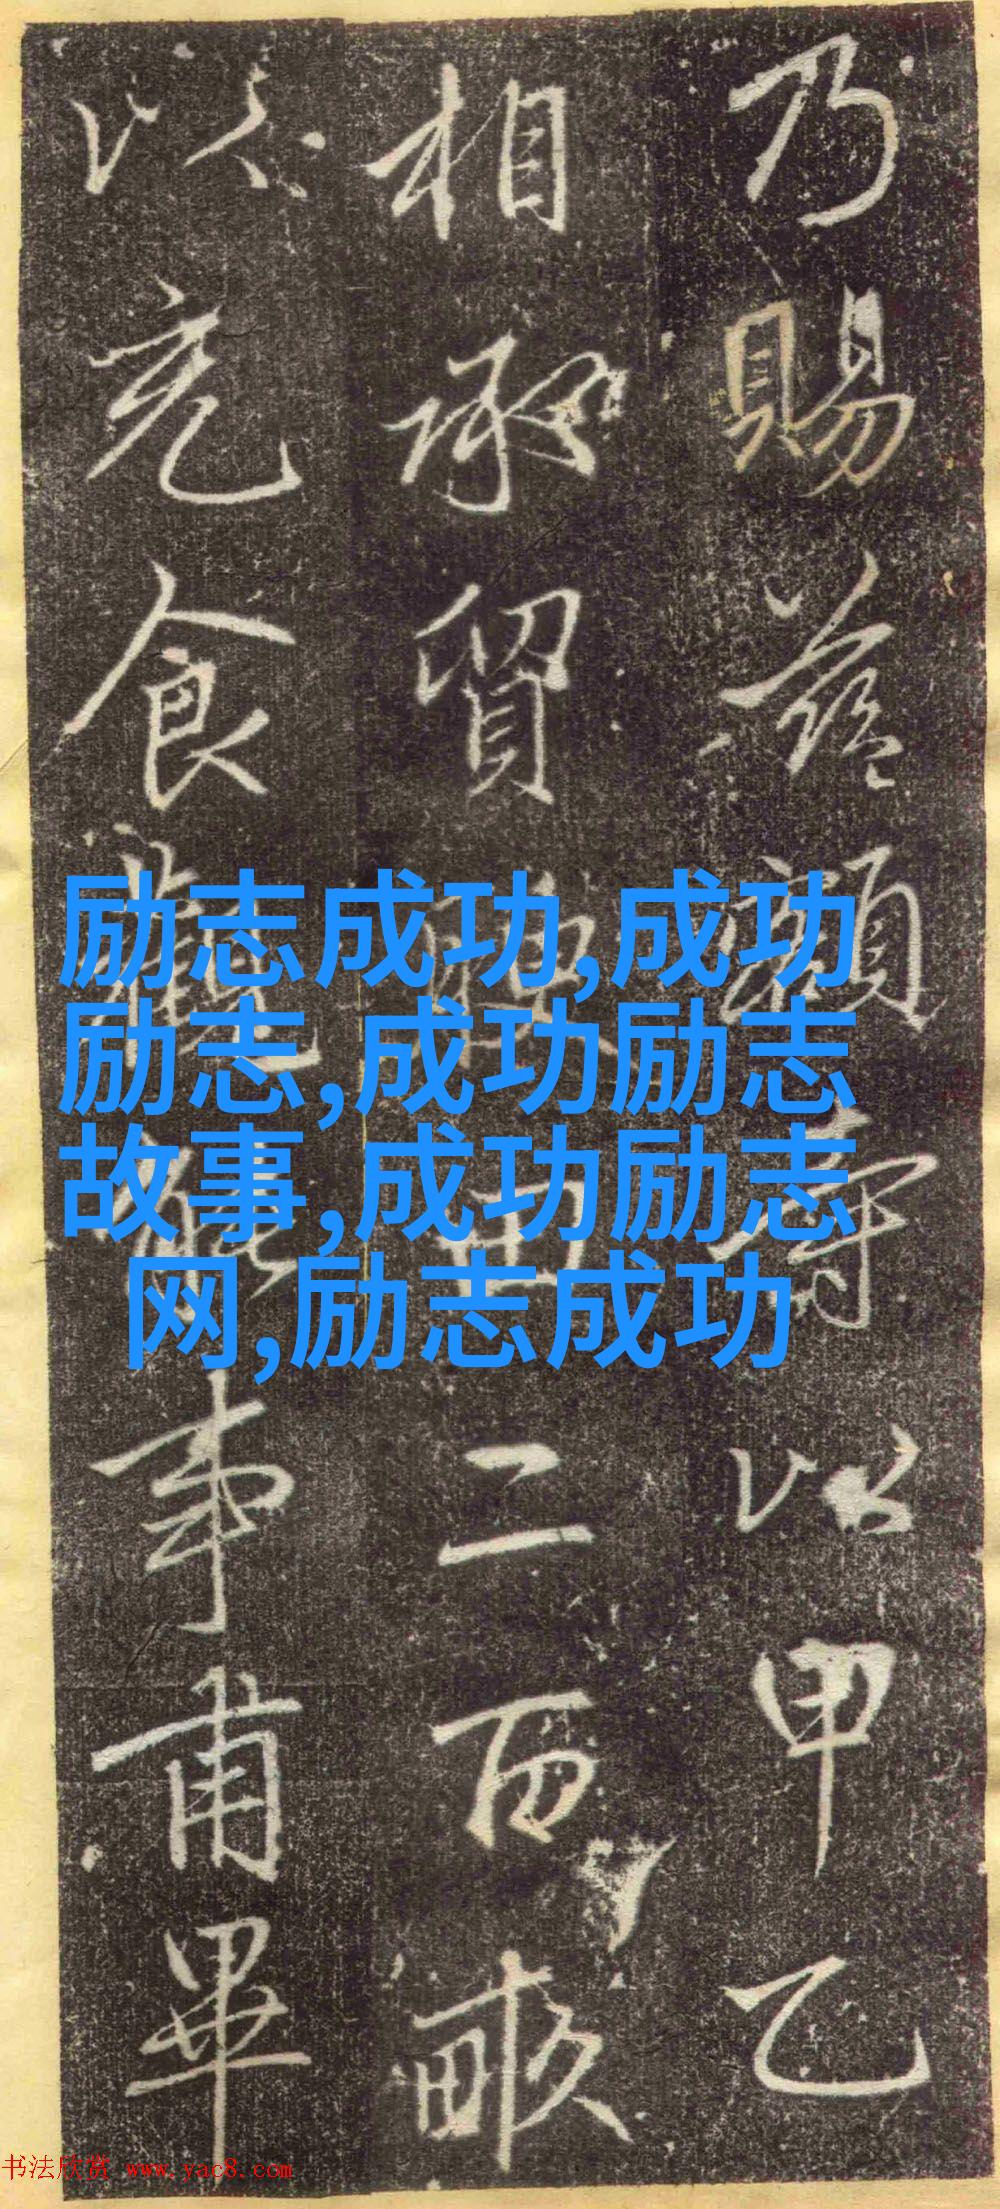 乃賜益額寺以甲乙
相承貿腴田二百畝
以充食雜能事甫畢
励志成功,成功
励志,成功励志
故事,成功励志
网,励志成功
书法欣赏 www.yac8.com